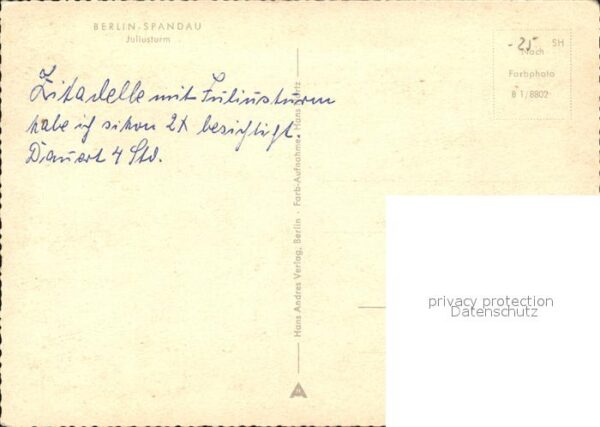 BERLIN-SPANDAU
Juliusturm
Zitadelle mit Juliusturm
habe ich schon 2x besichtigt.
Dauert 4 Std.
Hans Andres Verlag, Berlin · Farb-Aufnahme: Hans
-25 SH
Nach
Farbphoto
B 1/8802
privacy protection
Datenschutz